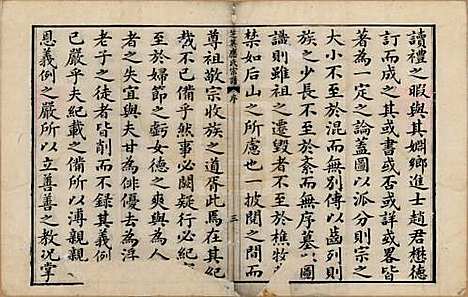 讀禮之暇與其婣鄉進士趙君懋德
訂而成之其或書或否或詳或畧皆
著為一定之論蓋圖以派分則宗之
大小不至於混而無別傳以齒列則
族之少長不至於紊而無序墓以圖
識則雖祖之遷毀者不至於樵牧
禁如后山之所慮也一披閱之間而
芝英應氏宗譜 序 三
尊祖敬宗收族之道胥此焉在其紀
載不已備乎然事必闕疑行必紀
至於婦節之虧女德之爽與為人
者之失宜與夫甘為異端浮
老子之徒者皆削而不錄其義例
已嚴乎夫紀載之備所以溥親親
恩義例之嚴所以立善善之教況掌